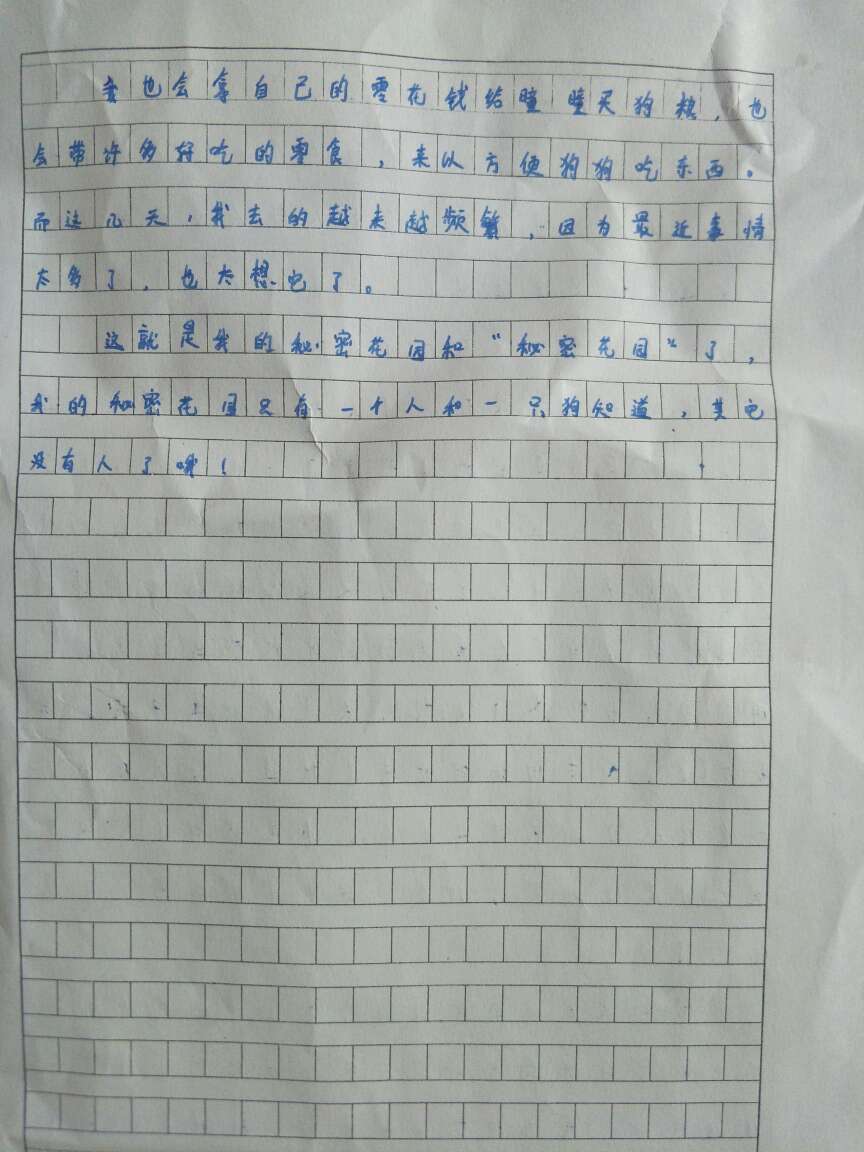 我也会拿自己的零花钱给瞳瞳买狗粮，也
会带许多好吃的零食，来以方便狗狗吃东西。
而这几天，我去的越来越频繁，因为最近事情
太多了，也太想它了。
这就是我的秘密花园和“秘密花园”了，
我的秘密花园只有一个人和一只狗知道，其它
没有人了哦！